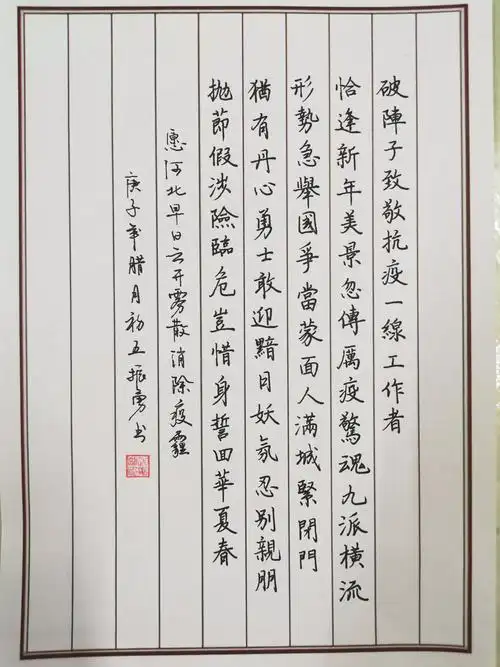 破陣子致敬抗疫一線工作者
恰逢新年美景忽傳厲疫驚魂九派橫流
形勢急舉國爭當蒙面人滿城緊閉門
猶有丹心勇士敢迎黯日妖氛忍別親朋
拋節假涉險臨危豈惜身誓回華夏春
愿河北早日云开雾散消除疫霾
庚子年腊月初五振勇书